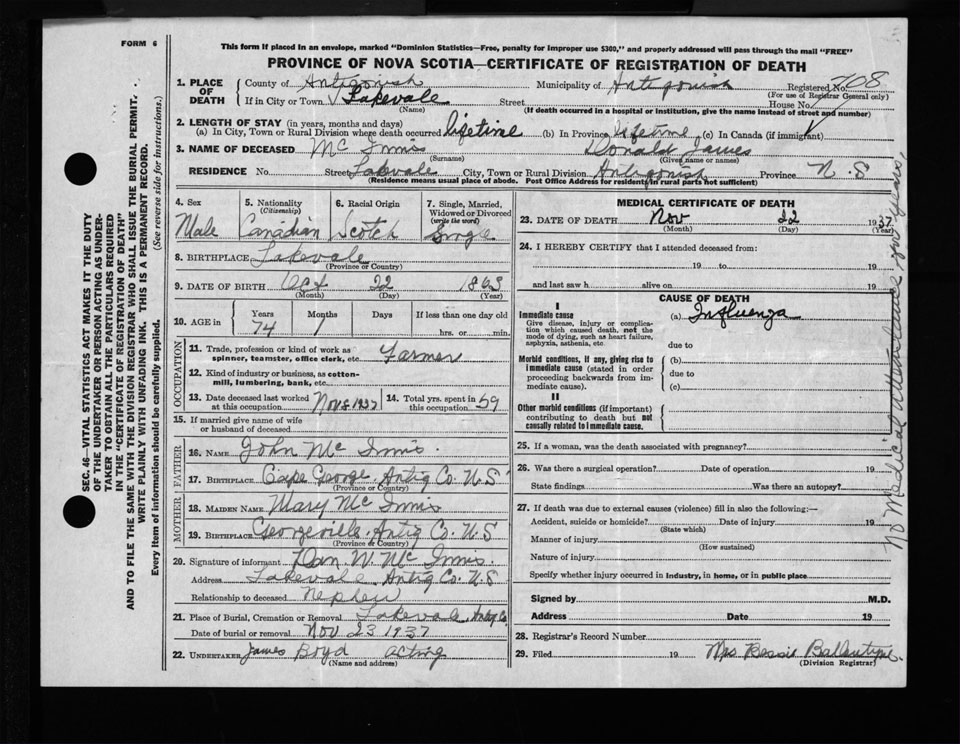 FORM 6
This form if placed in an envelope, marked "Dominion Statistics—Free, penalty for improper use $300," and properly addressed will pass through the mail "FREE"
PROVINCE OF NOVA SCOTIA—CERTIFICATE OF REGISTRATION OF DEATH
1. PLACE OF DEATH County of Antigonish Municipality of Antigonish Registered No. 708
(For use of Registrar General only)
If in City or Town Lakevale Street House No.
(Name) (If death occurred in a hospital or institution, give the name instead of street and number)
2. LENGTH OF STAY (in years, months and days)
(a) In City, Town or Rural Division where death occurred lifetime (b) In Province lifetime (c) In Canada (if immigrant)
3. NAME OF DECEASED Mc Innis Donald James
(Surname) (Given name or names)
RESIDENCE No. Street Lakevale City, Town or Rural Division Antigonish Province N.S
(Residence means usual place of abode. Post Office Address for residents in rural parts not sufficient)
4. Sex 5. Nationality (Citizenship) 6. Racial Origin 7. Single, Married, Widowed or Divorced (write the word)
Male Canadian Scotch Single
8. BIRTHPLACE Lakevale
(Province or Country)
9. DATE OF BIRTH Oct 22 1863
(Month) (Day) (Year)
10. AGE in Years Months Days If less than one day old
74 1 hrs. or min.
OCCUPATION
11. Trade, profession or kind of work as spinner, teamster, office clerk, etc. Farmer
12. Kind of industry or business, as cotton-mill, lumbering, bank, etc.
13. Date deceased last worked at this occupation Nov 8 1937 14. Total yrs. spent in this occupation 59
15. If married give name of wife or husband of deceased
FATHER
16. NAME John Mc Innis.
17. BIRTHPLACE Cape George Antig Co. N.S
(Province or Country)
MOTHER
18. MAIDEN NAME Mary Mc Innis
19. BIRTHPLACE Georgeville Antig Co. N.S
(Province or Country)
20. Signature of informant Dan. W. Mc Innis
Address Lakevale Antig Co. N.S
Relationship to deceased nephew
21. Place of Burial, Cremation or Removal Lakevale Antig Co
Date of burial or removal Nov 23 1937
22. UNDERTAKER James Boyd acting
(Name and address)
MEDICAL CERTIFICATE OF DEATH
23. DATE OF DEATH Nov 22 1937
(Month) (Day) (Year)
24. I HEREBY CERTIFY that I attended deceased from:
19 to 19
and last saw h alive on 19
CAUSE OF DEATH
I
Immediate cause (a) Influenza
Give disease, injury or complication which caused death, not the mode of dying, such as heart failure, asphyxia, asthenia, etc.
due to
Morbid conditions, if any, giving rise to immediate cause (stated in order proceeding backwards from immediate cause).
(b)
due to
(c)
II
Other morbid conditions (if important) contributing to death but not causally related to immediate cause.
25. If a woman, was the death associated with pregnancy?
26. Was there a surgical operation? Date of operation 19
State findings Was there an autopsy?
27. If death was due to external causes (violence) fill in also the following:—
Accident, suicide or homicide? Date of injury 19
(State which)
Manner of injury
(How sustained)
Nature of injury
Specify whether injury occurred in industry, in home, or in public place
Signed by M.D.
Address Date 19
28. Registrar's Record Number
29. Filed 19 Mrs Bessie Ballentyne.
(Division Registrar)
No Medical Attendance for years.
SEC. 46—VITAL STATISTICS ACT MAKES IT THE DUTY
OF THE UNDERTAKER OR PERSON ACTING AS UNDER-
TAKER TO OBTAIN ALL THE PARTICULARS REQUIRED
IN THE "CERTIFICATE OF REGISTRATION OF DEATH"
AND TO FILE THE SAME WITH THE DIVISION REGISTRAR WHO SHALL ISSUE THE BURIAL PERMIT.
WRITE PLAINLY WITH UNFADING INK. THIS IS A PERMANENT RECORD.
Every item of information should be carefully supplied. (See reverse side for instructions.)